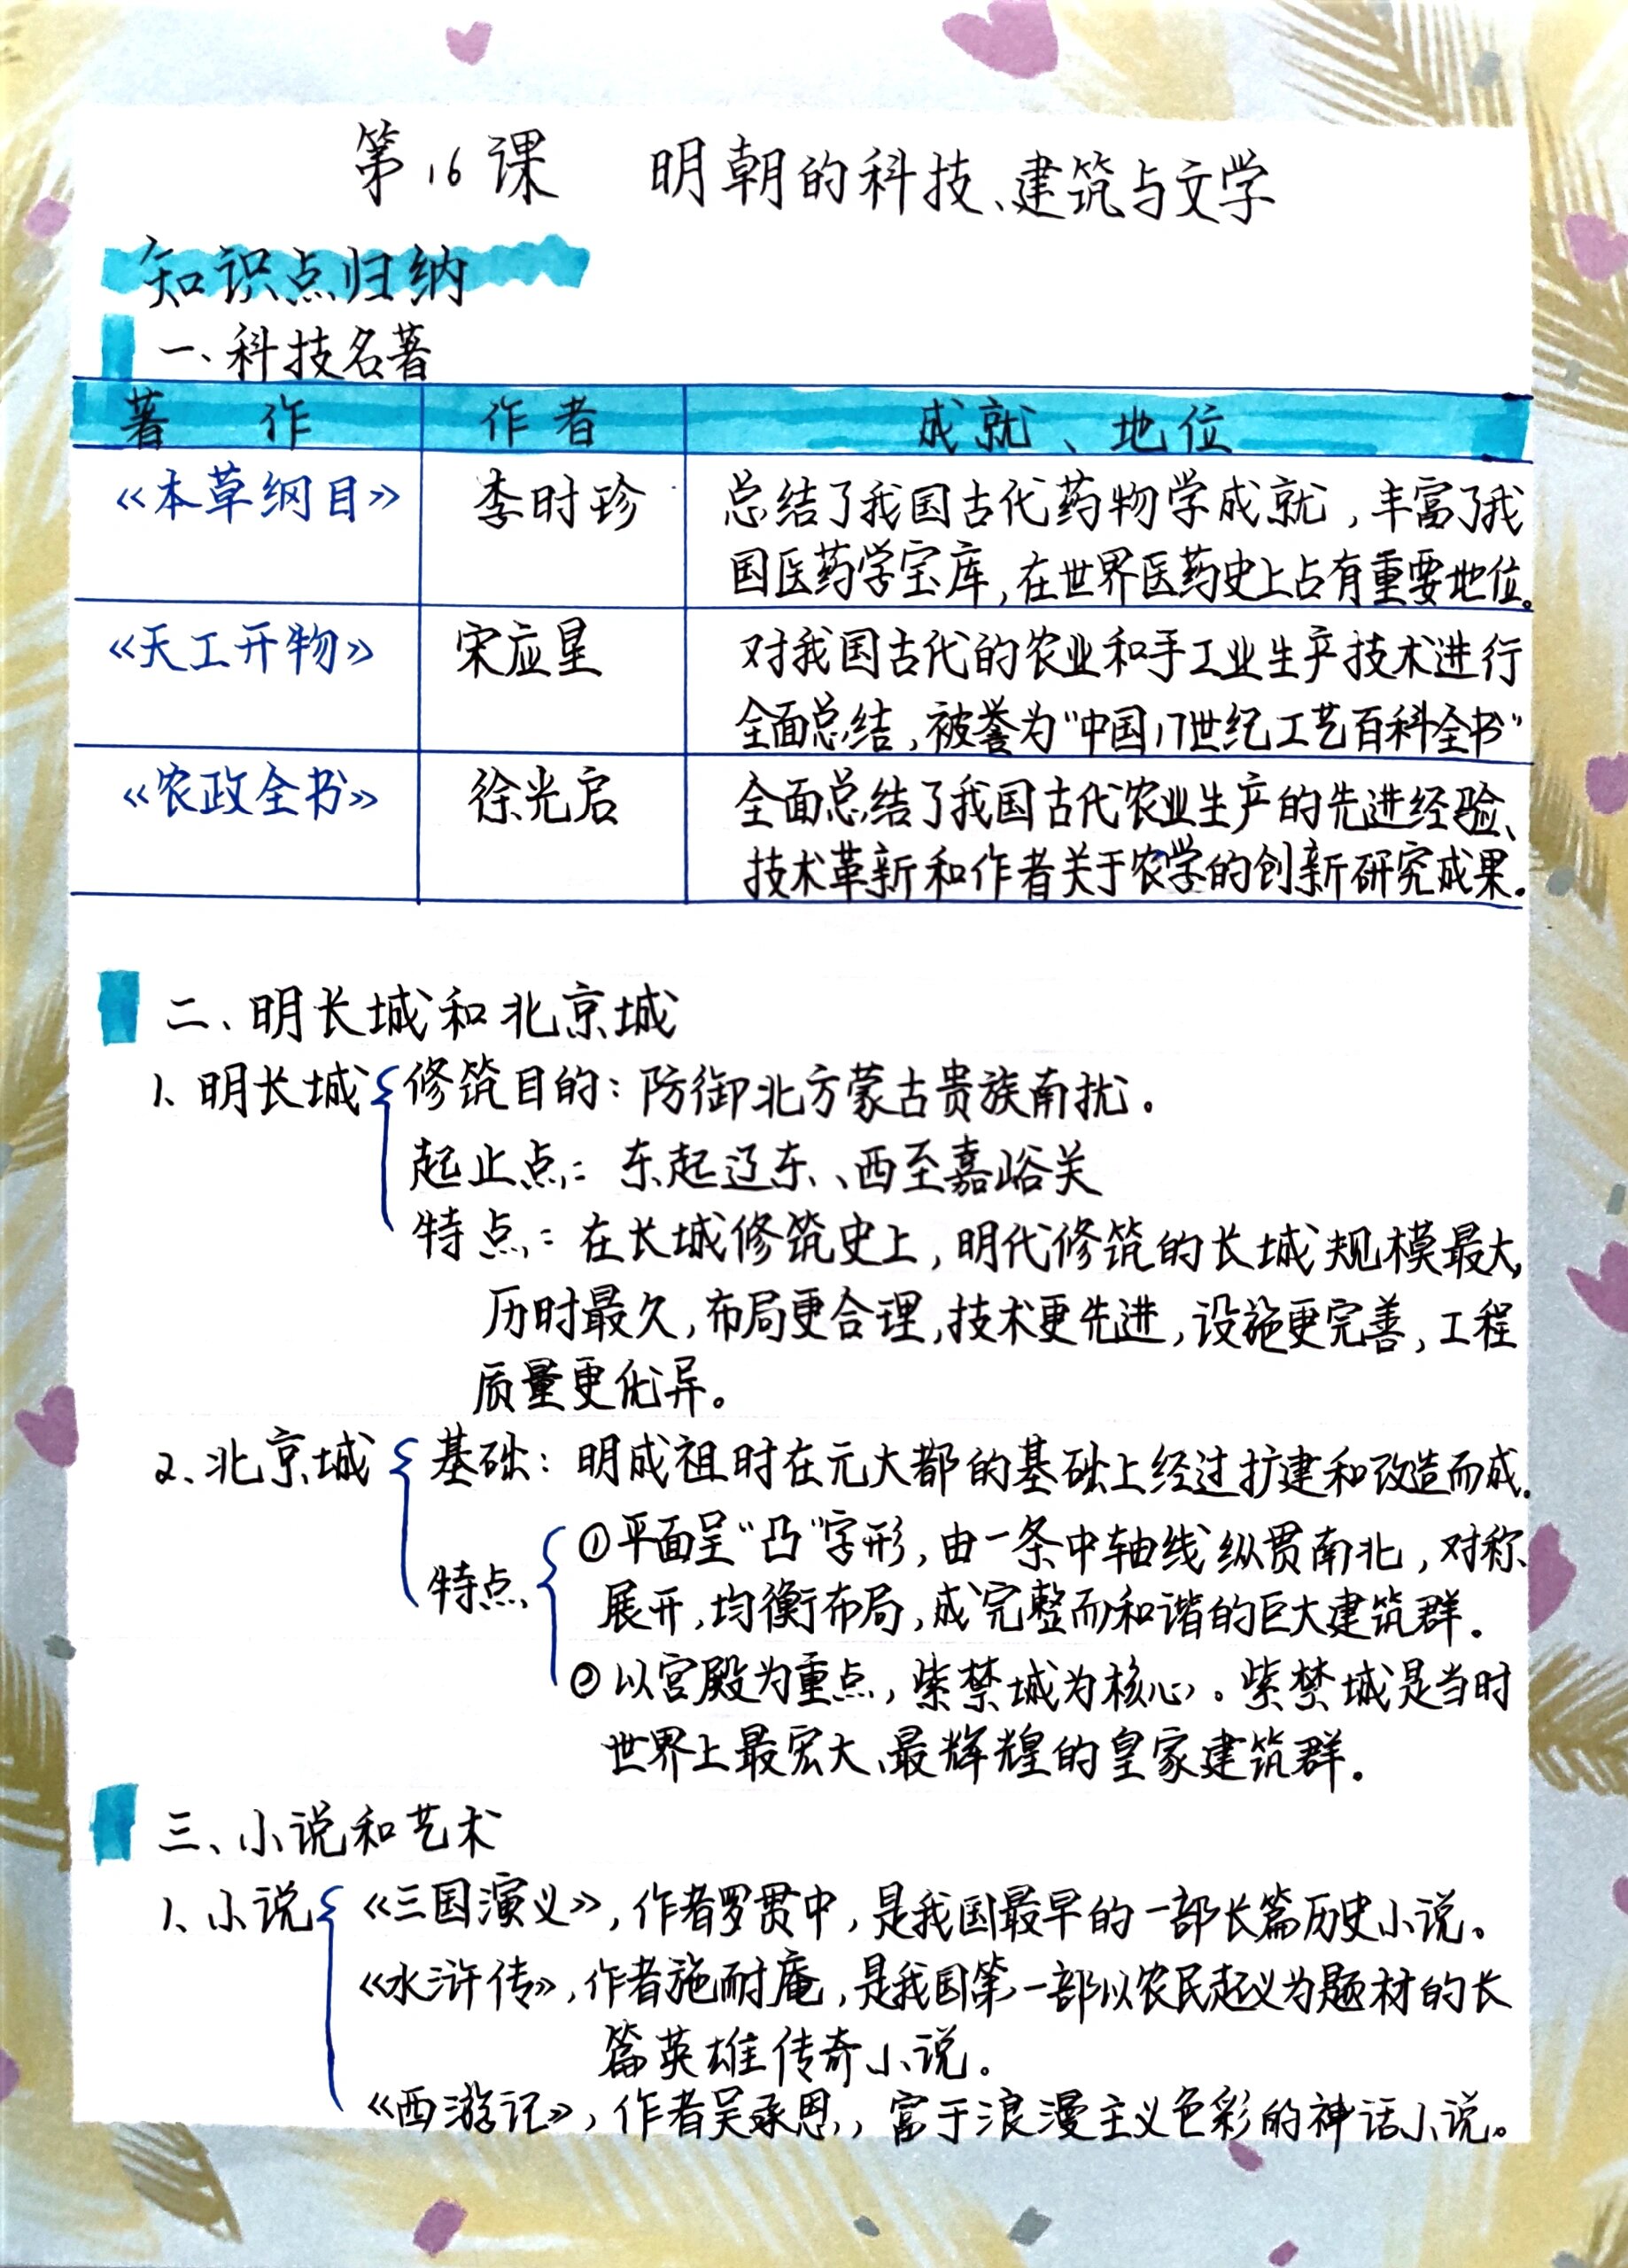 第16课 明朝的科技、建筑与文学
知识点归纳
一、科技名著
著 作 作者 成就、地位
《本草纲目》 李时珍 总结了我国古代药物学成就,丰富了我
国医药学宝库,在世界医药史上占有重要地位。
《天工开物》 宋应星 对我国古代的农业和手工业生产技术进行
全面总结,被誉为“中国17世纪工艺百科全书”
《农政全书》 徐光启 全面总结了我国古代农业生产的先进经验、
技术革新和作者关于农学的创新研究成果.
二、明长城和北京城
1、明长城 修筑目的:防御北方蒙古贵族南扰.
起止点:东起辽东、西至嘉峪关
特点:在长城修筑史上,明代修筑的长城规模最大,
历时最久,布局更合理,技术更先进,设施更完善,工程
质量更优异。
2、北京城 基础:明成祖时在元大都的基础上经过扩建和改造而成.
①平面呈“凸”字形,由一条中轴线纵贯南北,对称
特点 展开,均衡布局,成完整而和谐的巨大建筑群.
②以宫殿为重点,紫禁城为核心。紫禁城是当时
世界上最宏大、最辉煌的皇家建筑群.
三、小说和艺术
1、小说 《三国演义》,作者罗贯中,是我国最早的一部长篇历史小说。
《水浒传》,作者施耐庵,是我国第一部以农民起义为题材的长
篇英雄传奇小说。
《西游记》,作者吴承恩,富于浪漫主义色彩的神话小说。